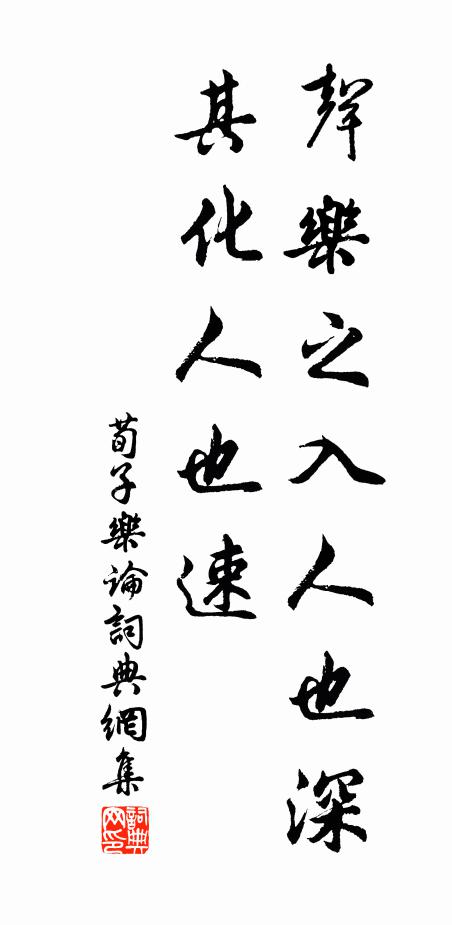 聲樂之入人也深
其化人也速
荀子樂論詞典網集
詞典网印